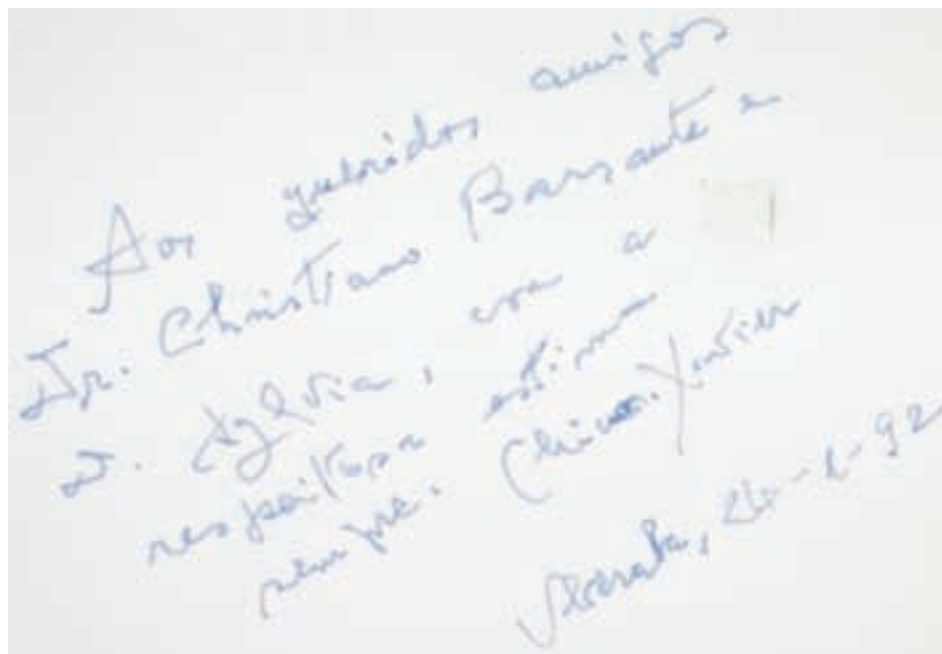 Aos queridos amigos
Dr. Christiano Barsante e
D. Sylvia, com a
respeitosa estima
sempre. Chico Xavier
Uberaba, 24-1-92